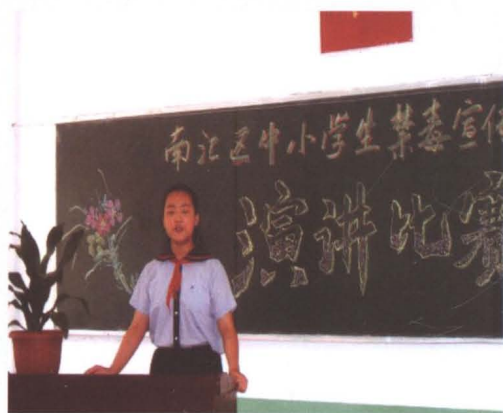 南汇区中小学生禁毒宣
演讲比赛